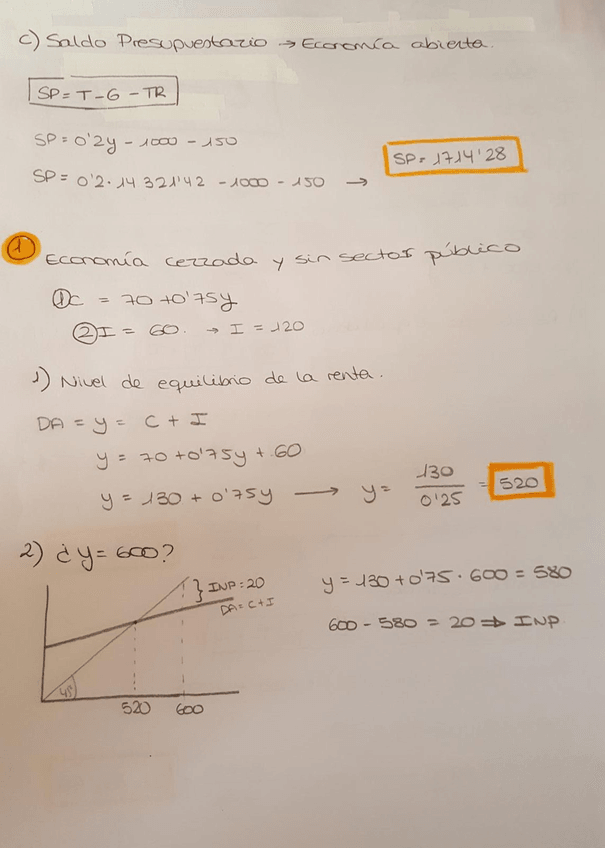 c) Saldo Presupuestario → Economía abierta.
SP = T - G - TR
SP = 0'2y - 1000 - 150
SP = 0'2 · 14 321'42 - 1000 - 150 →
SP = 1714'28
1 Economía cerrada y sin sector público
① C = 70 + 0'75y
② I = 60. → I = 120
1) Nivel de equilibrio de la renta.
DA = y = C + I
y = 70 + 0'75y + 60
y = 130 + 0'75y → y = 130 / 0'25 = 520
2) ¿y = 600?
INP = 20
DA = C + I
45
520 600
y = 130 + 0'75 · 600 = 580
600 - 580 = 20 ⇒ INP.